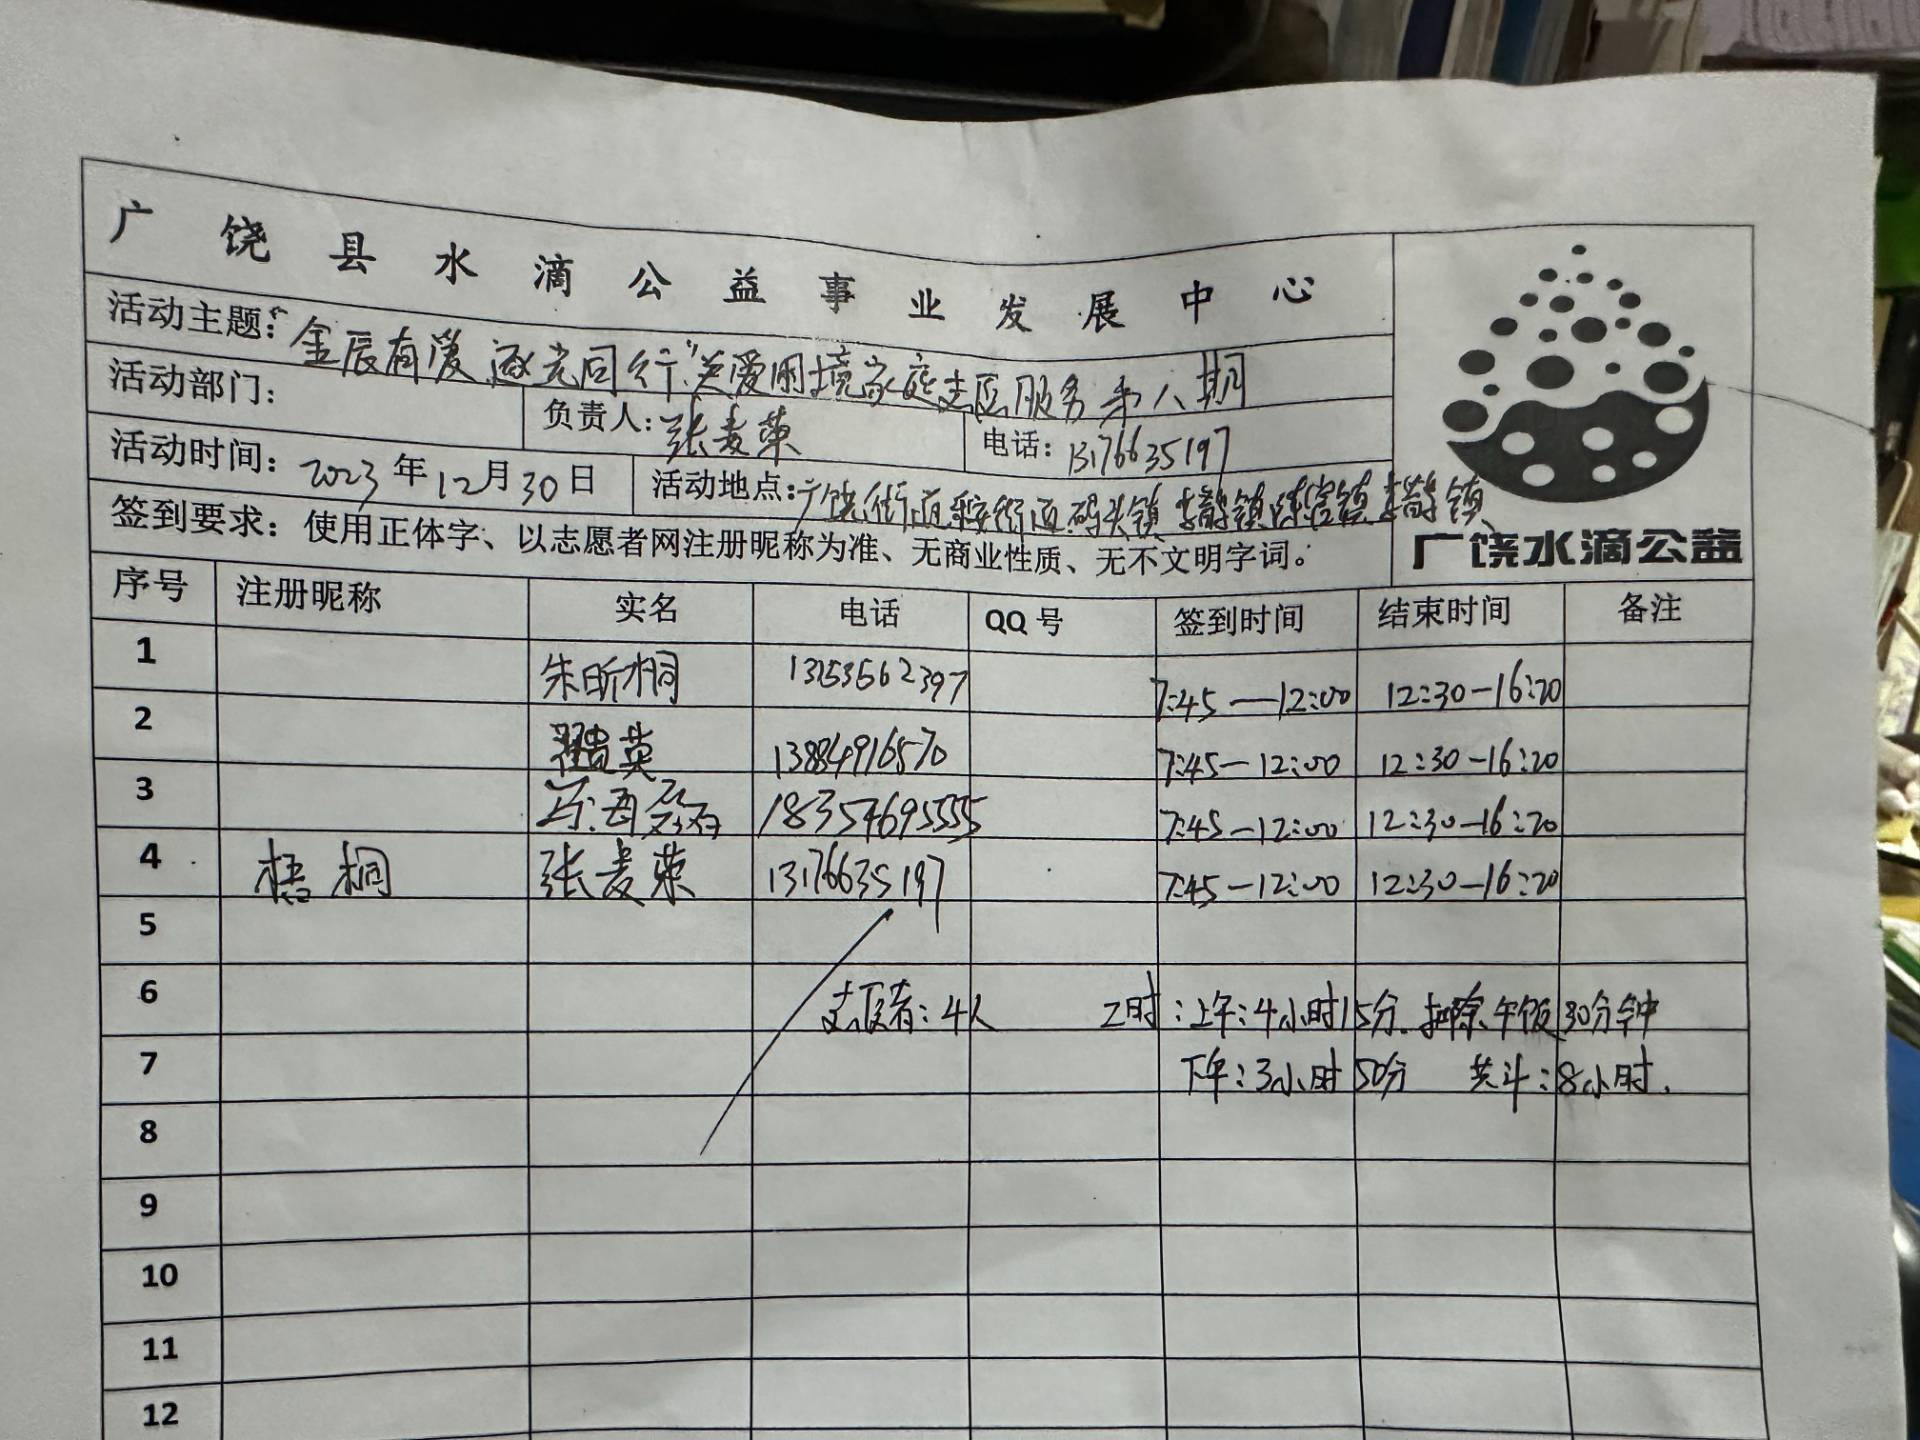 广饶县水滴公益事业发展中心
活动主题：“金辰有爱 逐光同行”关爱困境家庭志愿服务第八期
活动部门： 负责人：张麦荣 电话：13176635197
活动时间：2023年12月30日 活动地点：广饶街道 乐安街道 码头镇 李鹊镇 陈官镇 李鹊镇
签到要求：使用正体字、以志愿者网注册昵称为准、无商业性质、无不文明字词。
广饶水滴公益
序号 注册昵称 实名 电话 QQ号 签到时间 结束时间 备注
1 朱昕桐 13153562397 7:45—12:00 12:30-16:20
2 翟贵英 13884916570 7:45-12:00 12:30-16:20
3 18354695555 7:45-12:00 12:30-16:20
4 梧桐 张麦荣 13176635197 7:45-12:00 12:30-16:20
5
6 志愿者：4人 工时：上午：4小时15分. 扣除午饭30分钟
7 下午：3小时50分 共计：8小时.
8
9
10
11
12